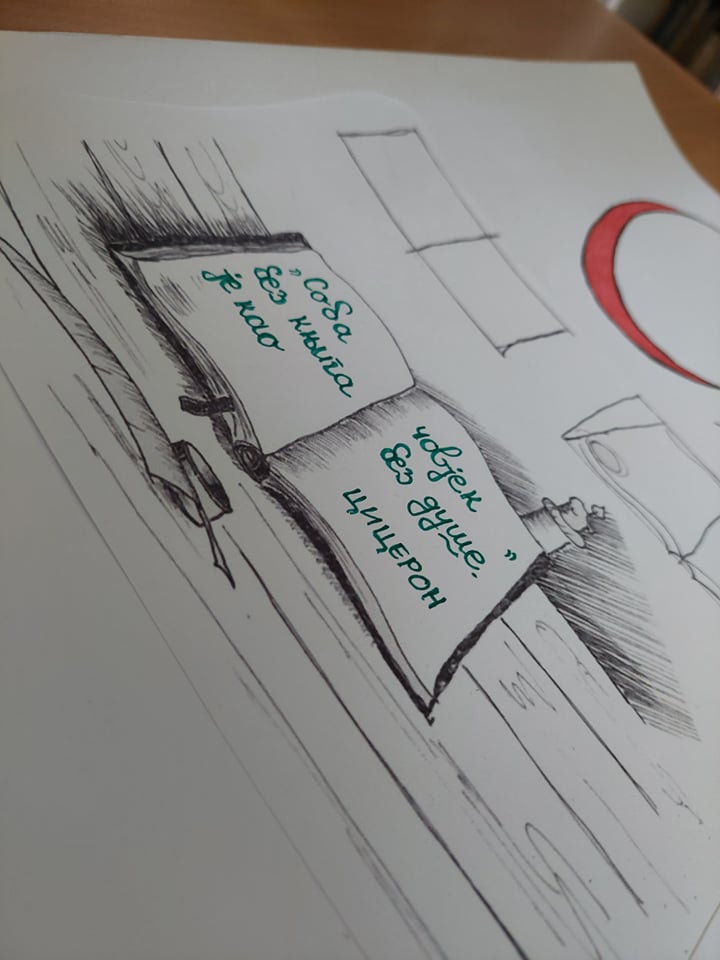 „Соба
без књига
је као
човјек
без душе.”
ЦИЦЕРОН